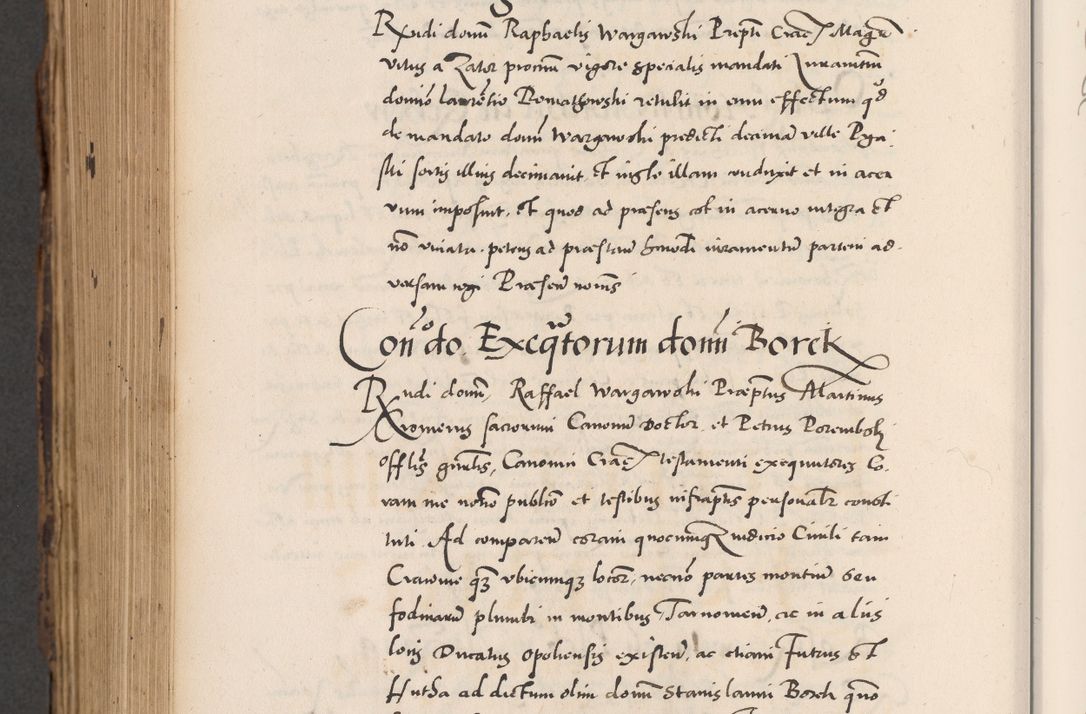 Rndi domi Raphaelis Wargawski Prepti Crac Magrn
vitus a Zator procum vigore specialis mandati Juramtum
domino laurentio Romathowski retulit in eum effectum qd
de mandato domi Wargawski predicti decimam ville
sortis illius decimavit Et illam induxit et in acer
vum imposuit, Et quod ad praesens est in acervo integra Et
no viciata. petens ad praestan hmodi iuramentu partem ad-
versam cogi Praesen nobis
Condo Exeqtorum domi Borek
Rndi domi, Raffael Wargawski Praeptus Martinus
Kromerus sacrorum Canonu Doctor, et Petrus Porembski
offlis gnralis, Canonici Crac testamenti exequutores Co
ram me notrio publico et testibus infraptis personalr consti
tuti. Ad comparen coram quocumqz iudicio Civili tam
Cracovie qz ubicumqz locor, necno partes montiu seu
fodinaru plumbi in montibus Tarnomen, ac in aliis
locis Ducatus Opoliensis existen, ac etiam Furus Et
Hutha ad dictum olim domi Stanislaum Borek quo